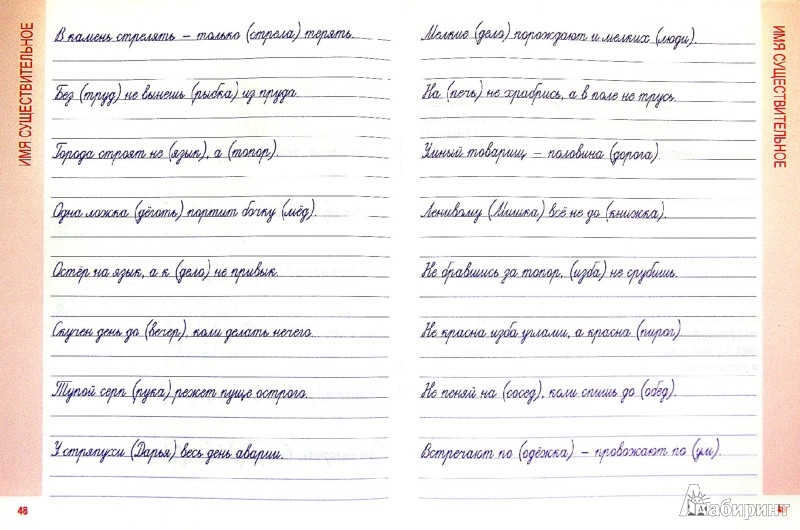 ИМЯ СУЩЕСТВИТЕЛЬНОЕ
В камень стрелять – только (стрела) терять.
Без (труд) не вынешь (рыбка) из пруда.
Города строят не (язык), а (топор).
Одна ложка (дёготь) портит бочку (мёд).
Остёр на язык, а к (дело) не привык.
Скучен день до (вечер), коли делать нечего.
Тупой серп (рука) режет пуще острого.
У стряпухи (Дарья) весь день аварии.
48
ИМЯ СУЩЕСТВИТЕЛЬНОЕ
Мелкие (дело) порождают и мелких (люди).
На (печь) не храбрись, а в поле не трусь.
Умный товарищ – половина (дорога).
Ленивому (Мишка) всё не до (книжка).
Не бравшись за топор, (изба) не срубишь.
Не красна изба углами, а красна (пирог)
Не пеняй на (сосед), коли спишь до (обед).
Встречают по (одёжка) – провожают по (ум).
Лабиринт